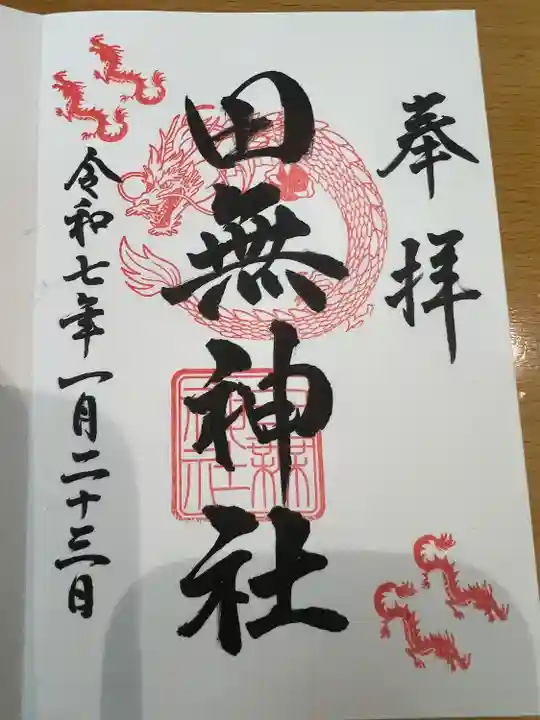 奉拝
田無神社
令和七年一月二十三日